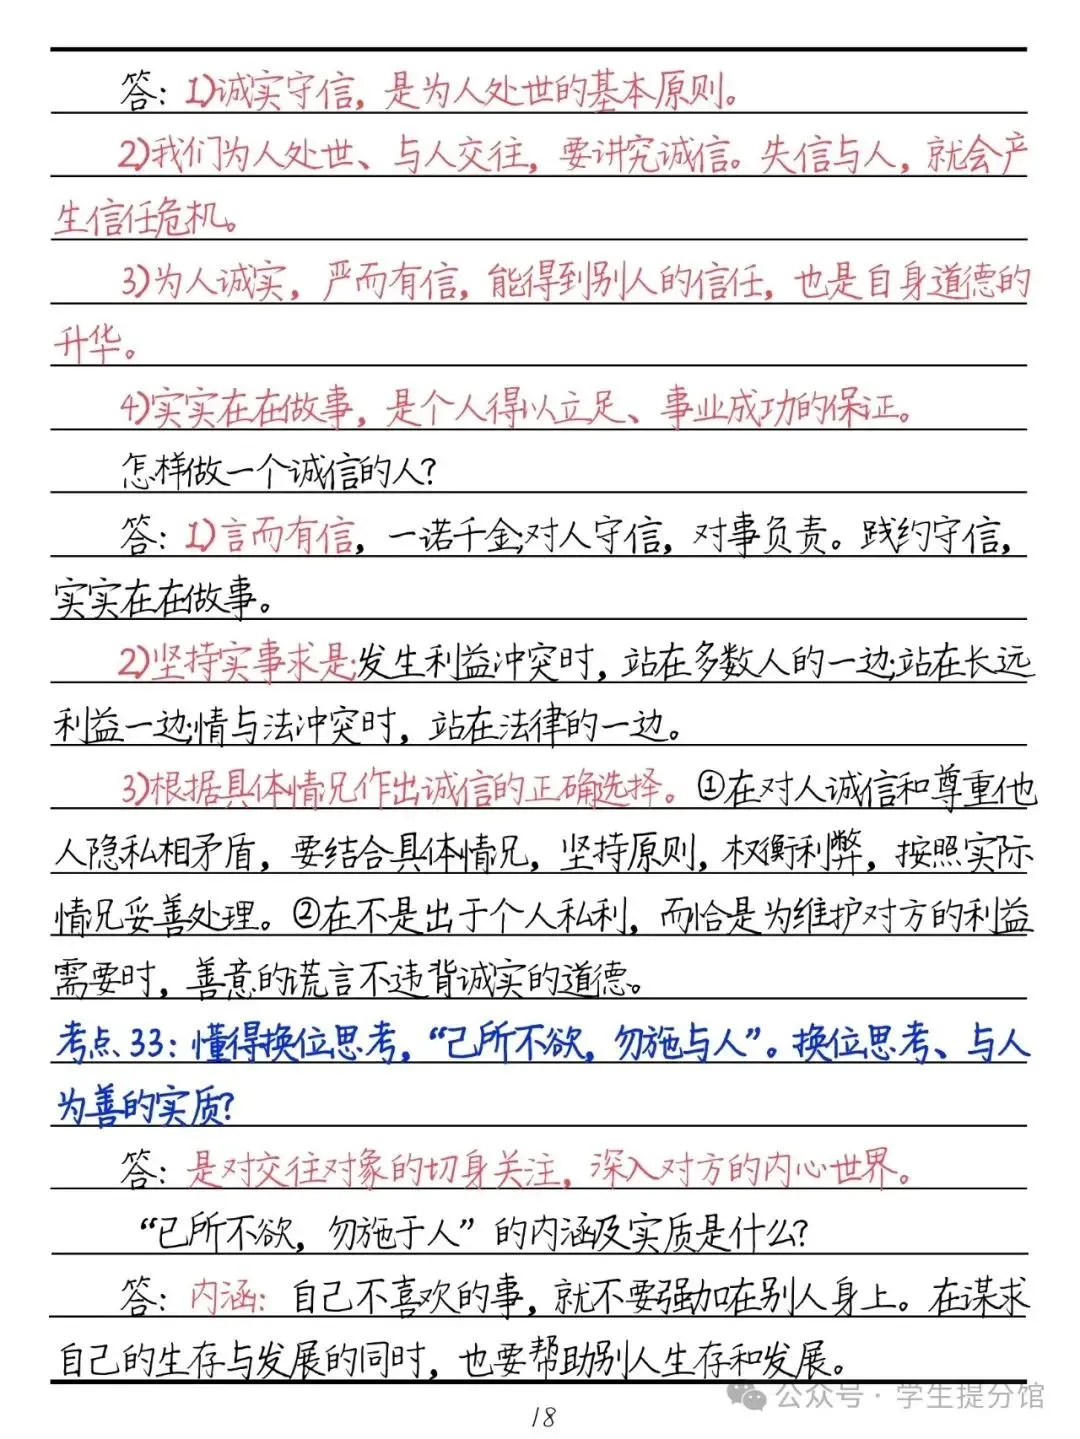 答：1)诚实守信，是为人处世的基本原则。
2)我们为人处世、与人交往，要讲究诚信。失信与人，就会产
生信任危机。
3)为人诚实，严而有信，能得到别人的信任，也是自身道德的
升华。
4)实实在在做事，是个人得以立足、事业成功的保证。
怎样做一个诚信的人?
答：1)言而有信，一诺千金;对人守信，对事负责。践约守信，
实实在在做事。
2)坚持实事求是;发生利益冲突时，站在多数人的一边;站在长远
利益一边;情与法冲突时，站在法律的一边。
3)根据具体情况作出诚信的正确选择。①在对人诚信和尊重他
人隐私相矛盾，要结合具体情况，坚持原则，权衡利弊，按照实际
情况妥善处理。②在不是出于个人私利，而恰是为维护对方的利益
需要时，善意的谎言不违背诚实的道德。
考点33：懂得换位思考，“己所不欲，勿施与人”。换位思考、与人
为善的实质?
答：是对交往对象的切身关注，深入对方的内心世界。
“已所不欲，勿施于人”的内涵及实质是什么?
答：内涵：自己不喜欢的事，就不要强加在别人身上。在谋求
自己的生存与发展的同时，也要帮助别人生存和发展。
公众号·学生提分馆
18